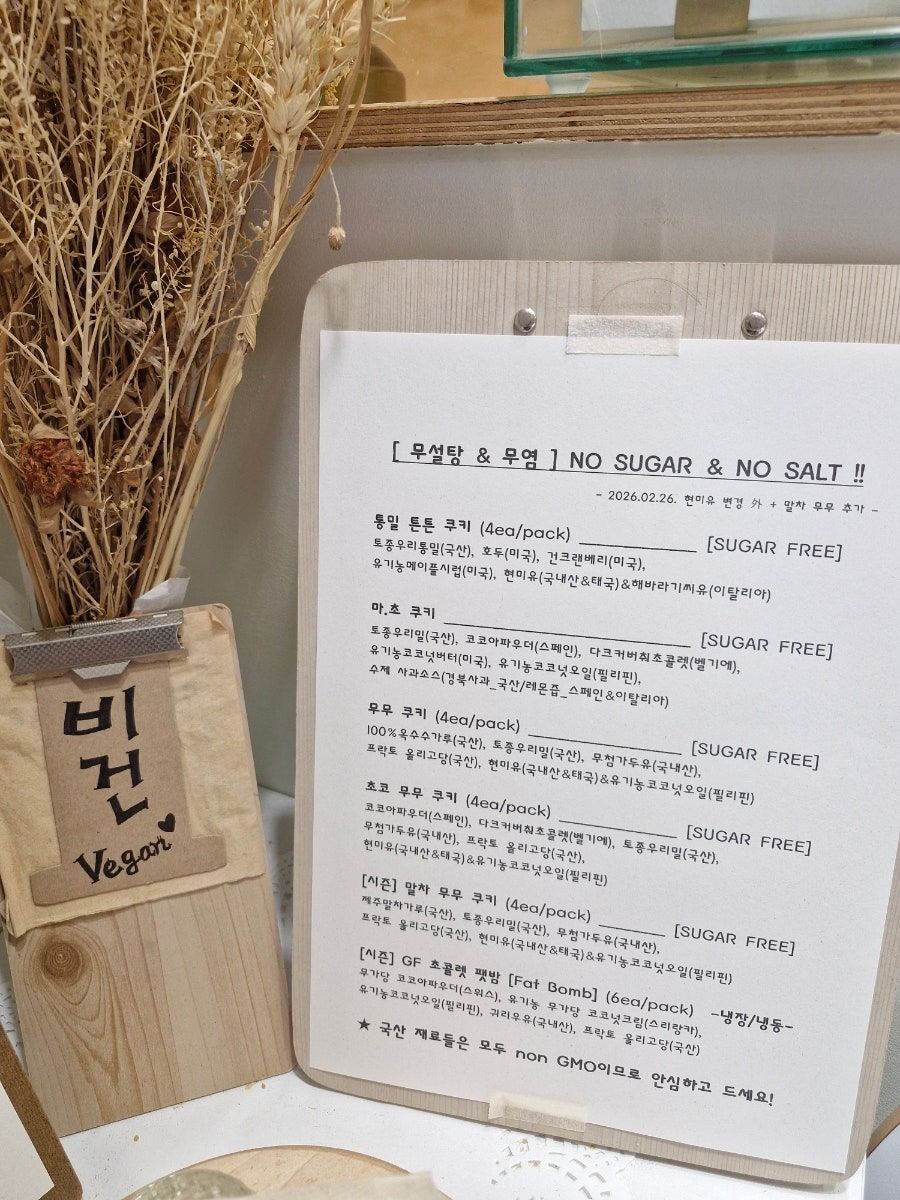 [ 무설탕 & 무염 ] NO SUGAR & NO SALT !!
- 2026.02.26. 현미유 변경 外 + 말차 무무 추가 -
통밀 튼튼 쿠키 (4ea/pack) __________ [SUGAR FREE]
토종우리통밀(국산), 호두(미국), 건크랜베리(미국),
유기농메이플시럽(미국), 현미유(국내산&태국)&해바라기씨유(이탈리아)
마.초 쿠키 ______________________ [SUGAR FREE]
토종우리밀(국산), 코코아파우더(스페인), 다크커버춰초콜렛(벨기에),
유기농코코넛버터(미국), 유기농코코넛오일(필리핀),
수제 사과소스(경북사과_국산/레몬즙_스페인&이탈리아)
무무 쿠키 (4ea/pack) _____________ [SUGAR FREE]
100%옥수수가루(국산), 토종우리밀(국산), 무첨가두유(국내산),
프락토 올리고당(국산), 현미유(국내산&태국)&유기농코코넛오일(필리핀)
초코 무무 쿠키 (4ea/pack) __________ [SUGAR FREE]
코코아파우더(스페인), 다크커버춰초콜렛(벨기에), 토종우리밀(국산),
무첨가두유(국내산), 프락토 올리고당(국산),
현미유(국내산&태국)&유기농코코넛오일(필리핀)
[시즌] 말차 무무 쿠키 (4ea/pack) ______ [SUGAR FREE]
제주말차가루(국산), 토종우리밀(국산), 무첨가두유(국내산),
프락토 올리고당(국산), 현미유(국내산&태국)&유기농코코넛오일(필리핀)
[시즌] GF 초콜렛 팻밤 [Fat Bomb] (6ea/pack) -냉장/냉동-
무가당 코코아파우더(스위스), 유기농 무가당 코코넛크림(스리랑카),
유기농코코넛오일(필리핀), 귀리우유(국내산), 프락토 올리고당(국산)
★ 국산 재료들은 모두 non GMO이므로 안심하고 드세요!
비
건
Vegan♥